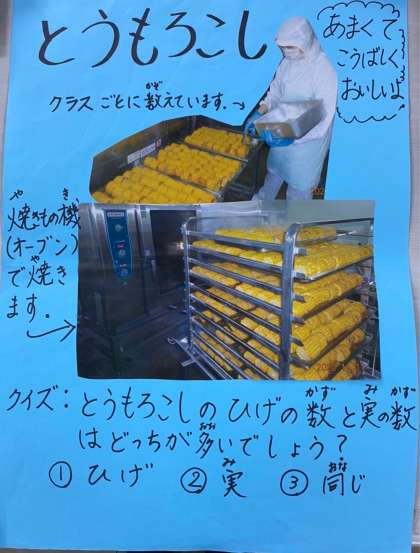 とうもろこし
あまくて
こうばしく
おいしいよ
クラスごとに数えています。→
かぞ
や き
焼きもの機
(オーブン)
や
で焼き
ます。
→
クイズ：とうもろこしのひげの数と実の数
かず み かず
はどっちが多いでしょう？
おお
①ひげ ②実 ③同じ
み おな